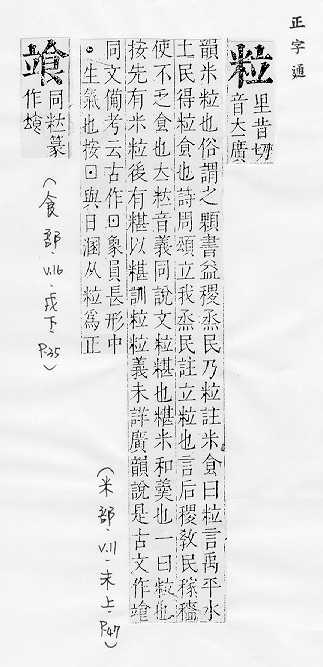 正字通
粒
里昔切
音大廣
韻米粒也俗謂之顆書益稷烝民乃粒註米食曰粒言禹平水
土民得粒食也詩周頌立我烝民註立粒也言后稷教民稼穡
使不乏食也大𥹷音義同說文粒糂也糂米和羹也一曰粒也
按先有米粒後有糂以糂訓粒粒義未詳廣韻說是古文作䇐
同文備考云古作囗象員長形中
生氣也按囗與日溷从粒為正
(米部.V.11.未上.P.47)
䇐
同粒篆
作
(食部.V.16.戌下.P.35)